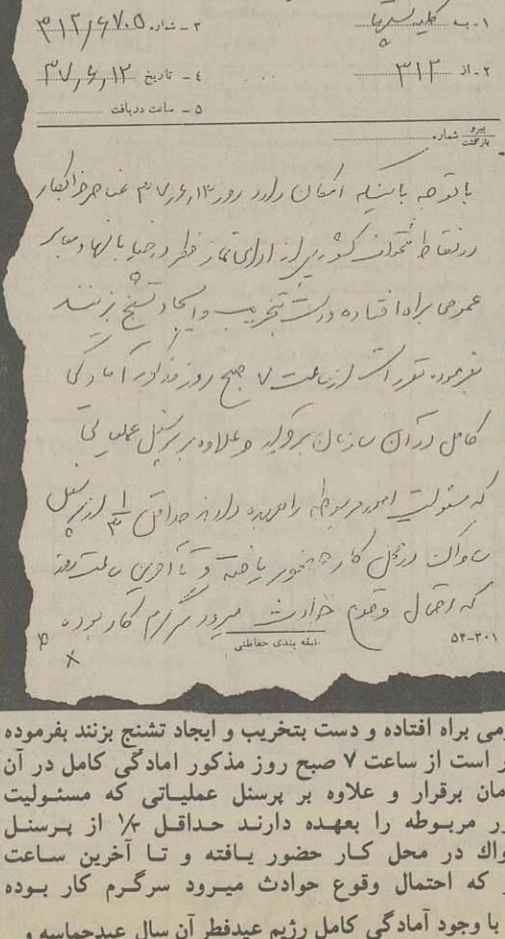 ۱- به کلیه بخشها
۳- شماره ۳۱۲/۶۷۰۵
۲- از ۳۱۲
۴- تاریخ ۳۷,۶,۱۲
۵- ساعت دریافت
پیرو
بازگشت
شماره
با توجه باینکه امکان دارد روز ۳۷,۶,۱۳ عناصر خرابکار
در نقاط مختلف کشور پس از ادای نماز فطر در خیابانها و معابر
عمومی براه افتاده و دست بتخریب و ایجاد تشنج بزنند
بفرموده مقرر است از ساعت ۷ صبح روز مذکور آمادگی
کامل در آن سازمان برقرار و علاوه بر پرسنل عملیاتی
که مسئولیت امور مربوطه را بعهده دارند حداقل ۱/۳ از پرسنل
ساواک در محل کار حضور یافته و تا آخرین ساعت روز
که احتمال وقوع حوادث میرود سرگرم کار بوده
طبقه بندی حفاظتی
۵۴-۳۰۱
ومی براه افتاده و دست بتخریب و ایجاد تشنج بزنند بفرموده
ر است از ساعت ۷ صبح روز مذکور امادگی کامل در آن
مان برقرار و علاوه بر پرسنل عملیاتی که مسئولیت
ور مربوطه را بعهده دارند حداقل ۱/۳ از پرسنل
واك در محل کار حضور یافته و تا آخرین ساعت
که احتمال وقوع حوادث میرود سرگرم کار بوده
با وجود آمادگی کامل رژیم عیدفطر آن سال عیدحماسه و